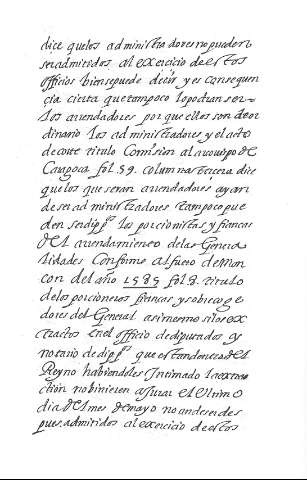 dice quelos administradores no pueden
ser admitidos al exercicio de estos
officios bien se puede decir y es consequen
çia cierta que tampoco lo podran ser
los arrendadores por que ellos son de or
dinario los administradores y el acto
de corte titulo Comision al arçobispo de
Caragoça fol. 59. columna tercera dice
que los que seran arrendadores ayan
de ser administradores tampoco pue
den ser dipp.os los porcionistas y fianças
del arrendamiento de las Genera
lidades conforme al fuero de Mon
con del año 1585 fol. 8. titulo
de los porcioneros fianças y sobrecoge
dores del General asimesmo si los ex
tractos en el officio de diputados y
notario de dipp.os que estan dentro del
Reyno habiendoles Intimado la extra
ction no binieren a jurar el ultimo
dia del mes de mayo no an de ser des
pues admitidos al exercicio de estos